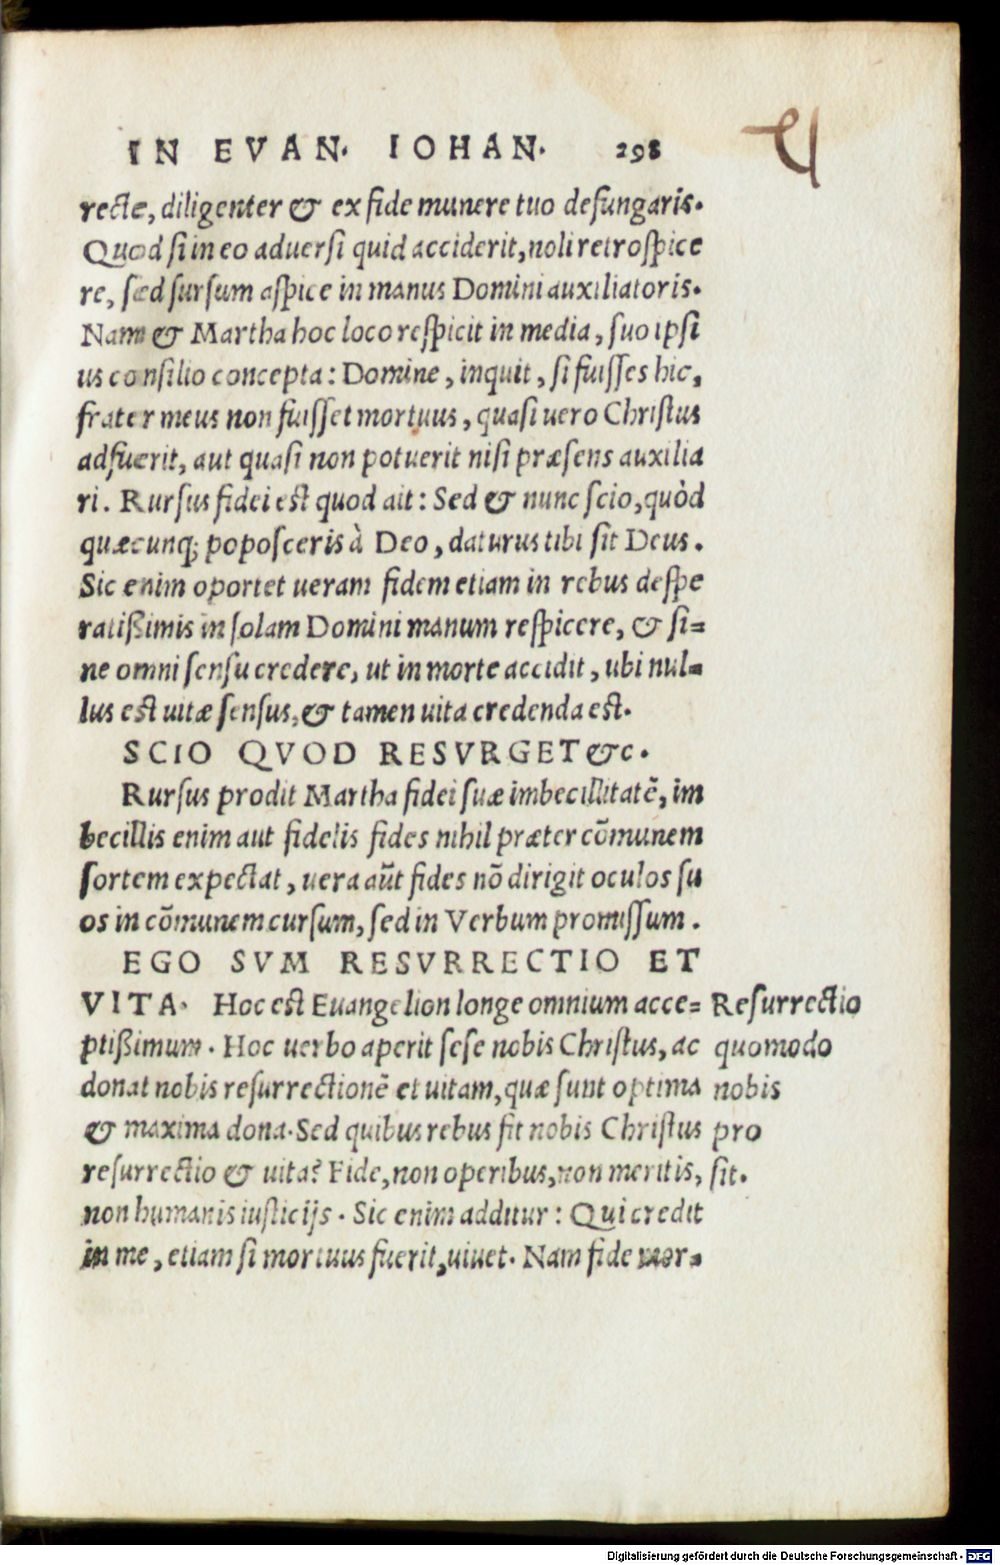 IN EVAN. IOHAN. 298
recte, diligenter & ex fide munere tuo defungaris.
Quod si in eo aduersi quid acciderit, noli retrospice
re, sed sursum aspice in manus Domini auxiliatoris.
Nam & Martha hoc loco respicit in media, suo ipsi
us consilio concepta: Domine, inquit, si fuisses hic,
frater meus non fuisset mortuus, quasi uero Christus
adfuerit, aut quasi non potuerit nisi præsens auxilia
ri. Rursus fidei est quod ait: Sed & nunc scio, quòd
quæcunq; poposceris à Deo, daturus tibi sit Deus.
Sic enim oportet ueram fidem etiam in rebus despe
ratißimis in solam Domini manum respicere, & si=
ne omni sensu credere, ut in morte accidit, ubi nul=
lus est uitæ sensus, & tamen uita credenda est.
SCIO QVOD RESVRGET &c.
Rursus prodit Martha fidei suæ imbecillitatẽ, im
becillis enim aut fidelis fides nihil præter cõmunem
sortem expectat, uera aũt fides nõ dirigit oculos su
os in cõmunem cursum, sed in Verbum promissum.
EGO SVM RESVRRECTIO ET
VITA. Hoc est Euangelion longe omnium acce=
ptißimum. Hoc uerbo aperit sese nobis Christus, ac
donat nobis resurrectionẽ et uitam, quæ sunt optima
& maxima dona. Sed quibus rebus fit nobis Christus
resurrectio & uita? Fide, non operibus, non meritis,
non humanis iusticijs. Sic enim additur: Qui credit
in me, etiam si mortuus fuerit, uiuet. Nam fide mor=
Resurrectio
quomodo
nobis
pro
sit.
Digitalisierung gefördert durch die Deutsche Forschungsgemeinschaft - DFG